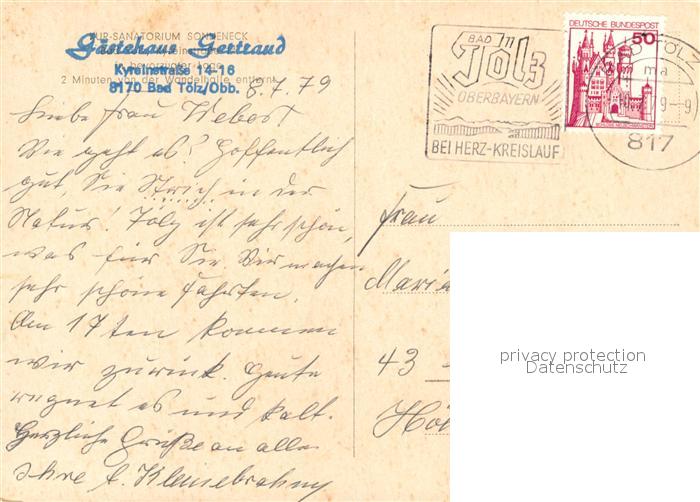 KUR-SANATORIUM SONNENECK
Gästehaus Gertraud
bevorzugter Lage
Kyreinstraße 14-16
2 Minuten von der Wandelhalle entfernt
8170 Bad Tölz/Obb.
8.7.79
Liebe Frau
Wie geht es? Hoffentlich
gut, Sie in der
Natur! Tölz ist sehr schön,
was für Sie Wir machen
sehr schöne Fahrten.
Am 17ten kommen
wir zurück. Heute
regnet es und kalt.
Herzliche Grüße an alle
Ihre
BAD
Tölz
OBERBAYERN
BEI HERZ-KREISLAUF
DEUTSCHE BUNDESPOST
50
BAD TÖLZ
ma
817
Frau
43
privacy protection
Datenschutz